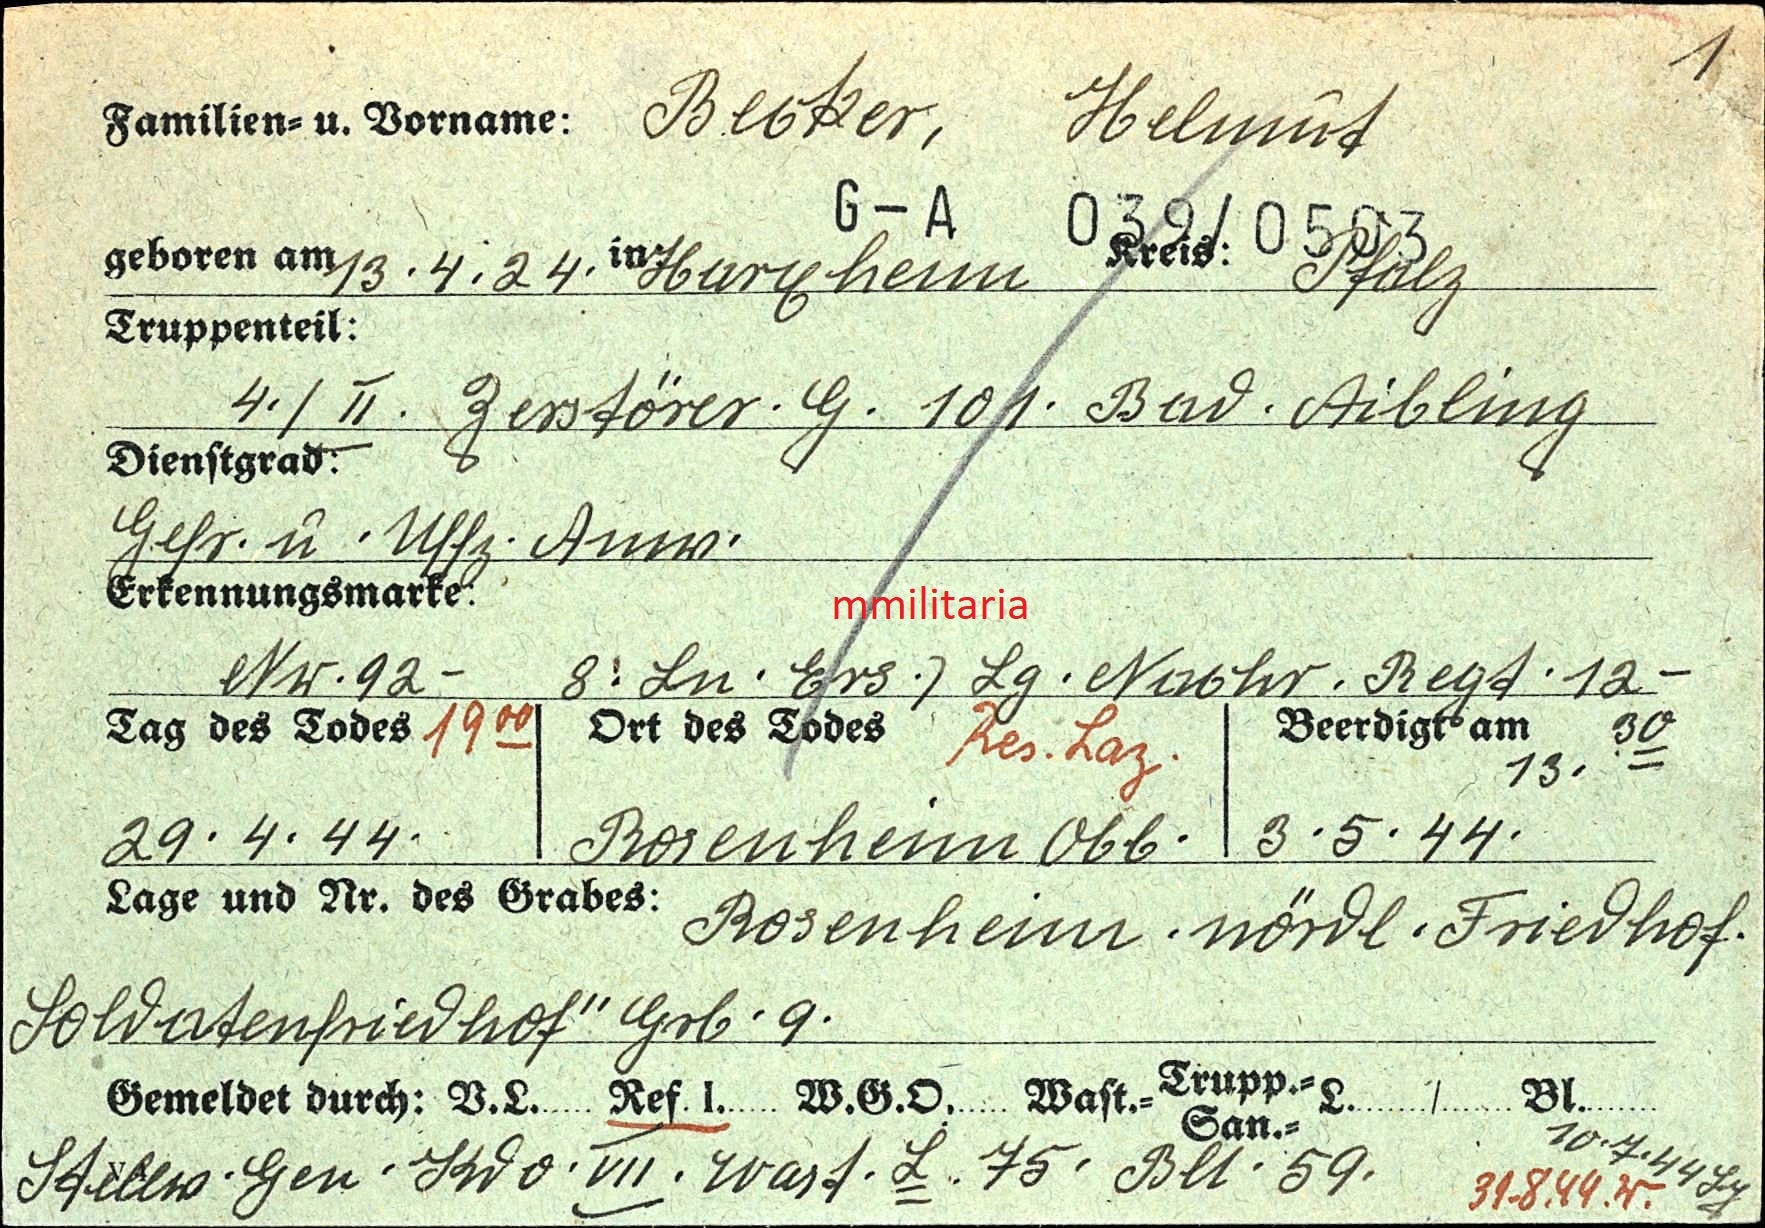 1
Familien= u. Vorname: Becker, Helmut
G-A 039/0503
geboren am 13.4.24. in: Harxheim Kreis: Pfalz
Truppenteil:
4./II. Zerstörer. G. 101. Bad. Aibling
Dienstgrad:
Gefr. u. Uffz. Anw.
Erkennungsmarke:
mmilitaria
Nr. 92- 8. Ln. Ers.) Lg. Nachr. Regt. 12-
Tag des Todes 19 00 Ort des Todes Res. Laz. Beerdigt am 13. 30
29.4.44. Rosenheim Obb. 3.5.44.
Lage und Nr. des Grabes: Rosenheim. nördl. Friedhof.
Soldatenfriedhof" Grb. 9.
Gemeldet durch: V.L. Ref. I. W.G.O. Wast.= Trupp.= San.= L. / Bl.
Stellv. Gen. Kdo. VII. Wast. L. 75. Bll. 59.
10.7.44
31.8.44.